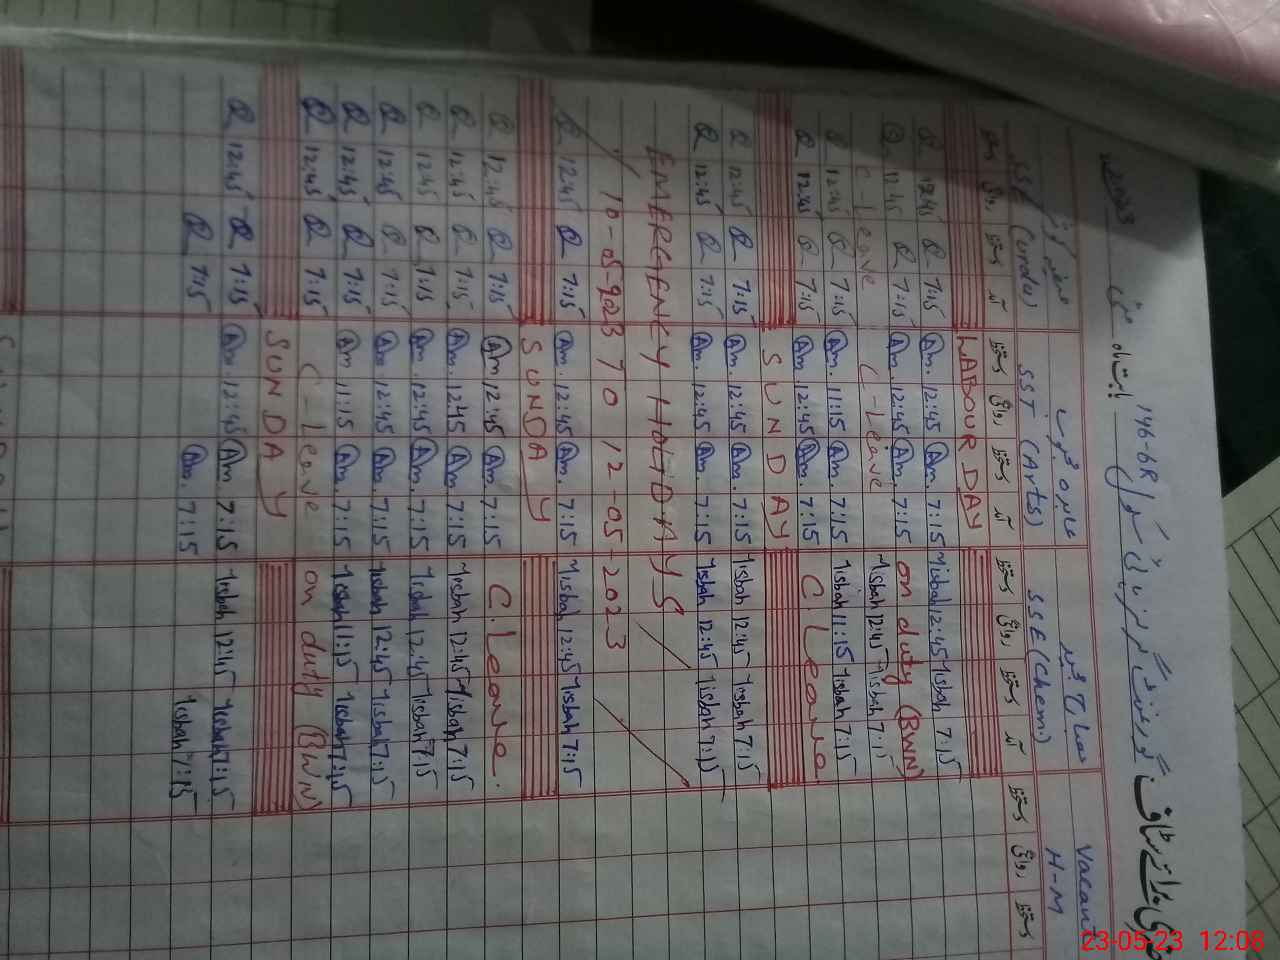 حاضری برائے سٹاف گورنمنٹ گرلز ہائی سکول 146-6R بابت ماہ مئی 2023
Vacant
SSE (urdu) SST (Arts) SSE (Chem) H-M
دستخط روانگی دستخط آمد دستخط روانگی دستخط آمد دستخط روانگی دستخط آمد دستخط روانگی دستخط
LABOUR DAY
12:45 7:15 Am. 12:45 Am. 7:15 Misbah 12:45 Misbah 7:15
12:45 7:15 Am. 12:45 Am. 7:15 on duty (BWN)
C-Leave C-Leave Misbah 12:45 Misbah 7:15
12:45 7:15 Am. 11:15 Am. 7:15 Misbah 11:15 Misbah 7:15
12:45 7:15 Am. 12:45 Am. 7:15 C.Leave
SUNDAY
12:45 7:15 Am. 12:45 Am. 7:15 Misbah 12:45 Misbah 7:15
12:45 7:15 Am. 12:45 Am. 7:15 Misbah 12:45 Misbah 7:15
EMERGENCY HOLIDAYS
10-05-2023 TO 12-05-2023
12:45 7:15 Am. 12:45 Am. 7:15 Misbah 12:45 Misbah 7:15
SUNDAY
12:45 7:15 Am 12:45 Am 7:15 C.Leave.
12:45 7:15 Am. 12:45 Am. 7:15 Misbah 12:45 Misbah 7:15
12:45 7:15 Am. 12:45 Am. 7:15 Misbah 12:45 Misbah 7:15
12:45 7:15 Am. 12:45 Am. 7:15 Misbah 12:45 Misbah 7:15
12:45 7:15 Am 11:15 Am. 7:15 Misbah 11:15 Misbah 7:15
12:45 7:15 C-Leave on duty (BWN)
SUNDAY
12:45 7:15 Am. 12:45 Am. 7:15 Misbah 12:45 Misbah 7:15
7:15 Am. 7:15 Misbah 7:15
23-05-23 12:08